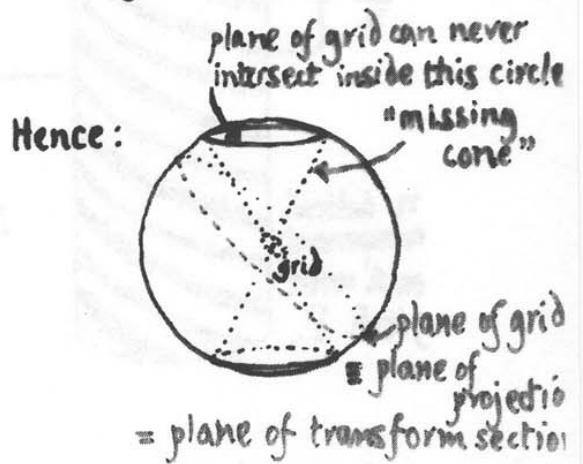 plane of grid can never
intersect inside this circle
Hence:
"missing
cone"
grid
plane of grid
≡ plane of
projectio
= plane of transform sectio